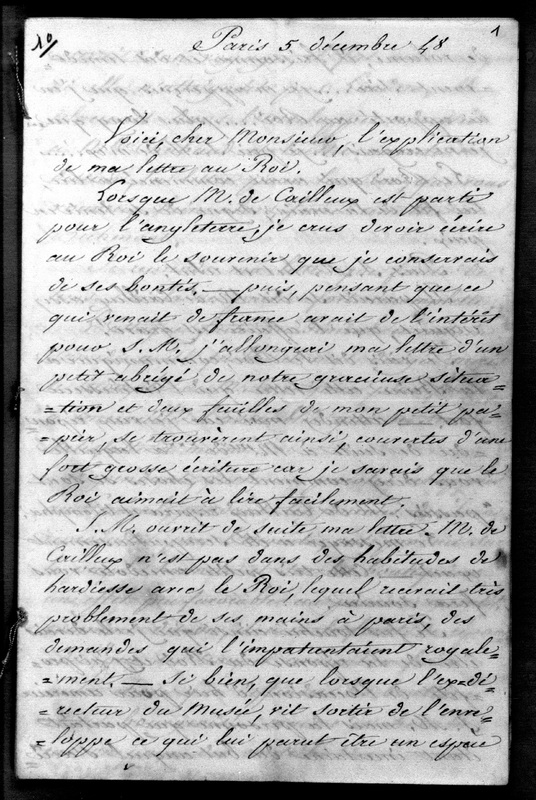 10/
1
Paris 5 décembre 48
Voici, cher Monsieur, l'explication
de ma lettre au Roi.
Lorsque M. de Cailleux est parti
pour l'angleterre, je crus devoir écrire
au Roi le souvenir que je conservais
de ses bontés. — puis, pensant que ce
qui venait de france avait de l'intérêt
pour S. M. j'allongeai ma lettre d'un
petit abrégé de notre gracieuse situa=
=tion et deux feuilles de mon petit pa=
=pier, se trouvèrent ainsi, couvertes d'une
fort grosse écriture car je savais que le
Roi aimait à lire facilement.
S. M. ouvrit de suite ma lettre. M. de
Cailleux n'est pas dans des habitudes de
hardiesse avec le Roi, lequel recevait très
problement de ses mains à paris, des
demandes qui l'impatientaient royale=
=ment. — Si bien, que lorsque l'ex=di=
=recteur du Musée, vit sortir de l'enve=
=loppe ce qui lui parut être un espèce